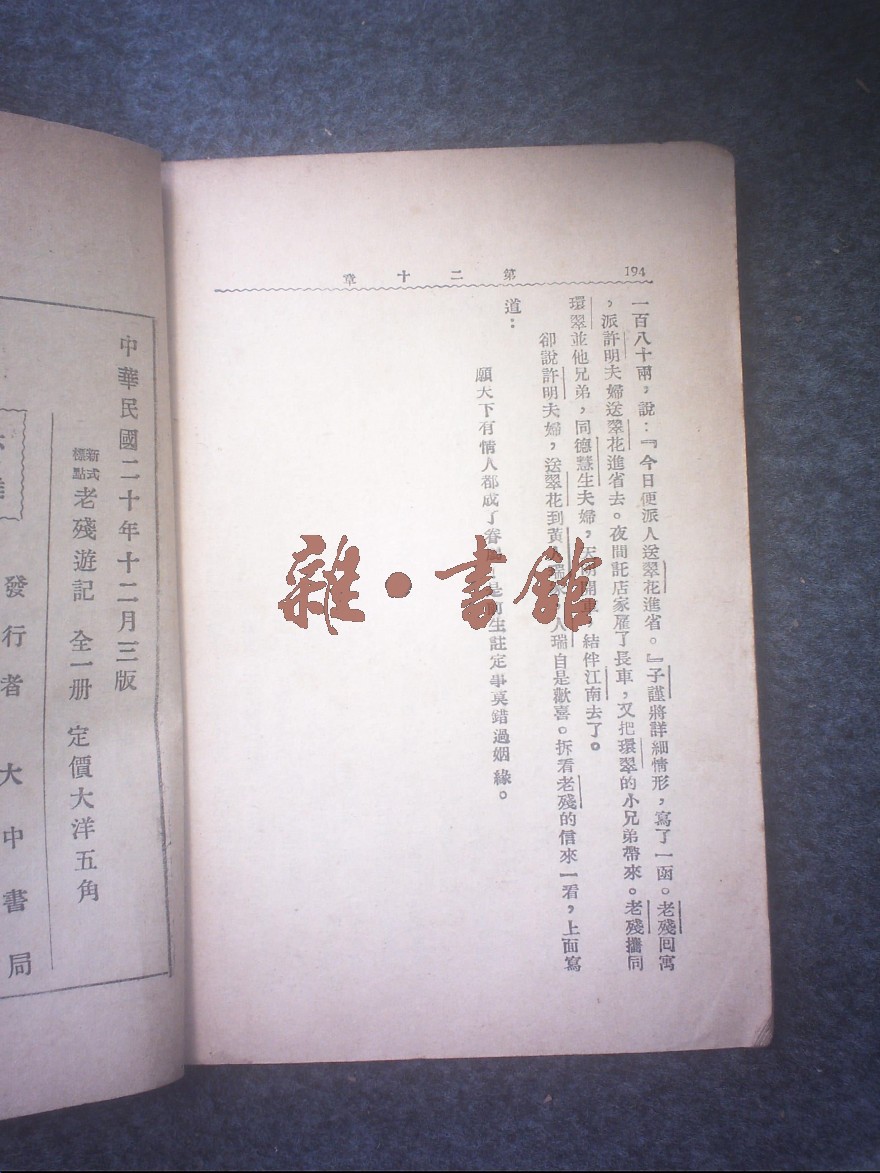 194
第二十章
一百八十兩，說：『今日便派人送翠花進省。』子謹將詳細情形，寫了一函。老殘回寓
，派許明夫婦送翠花進省去。夜間託店家雇了長車，又把環翠的小兄弟帶來。老殘攜同
環翠並他兄弟，同德慧生夫婦，天明開車，結伴江南去了。
卻說許明夫婦，送翠花到黃人瑞家，人瑞自是歡喜。拆看老殘的信來一看，上面寫
道：
願天下有情人都成了眷屬；是前生註定事莫錯過姻緣。
中華民國二十年十二月三版
新式標點老殘遊記 全一册 定價大洋五角
發行者 大中書局
雜·書館